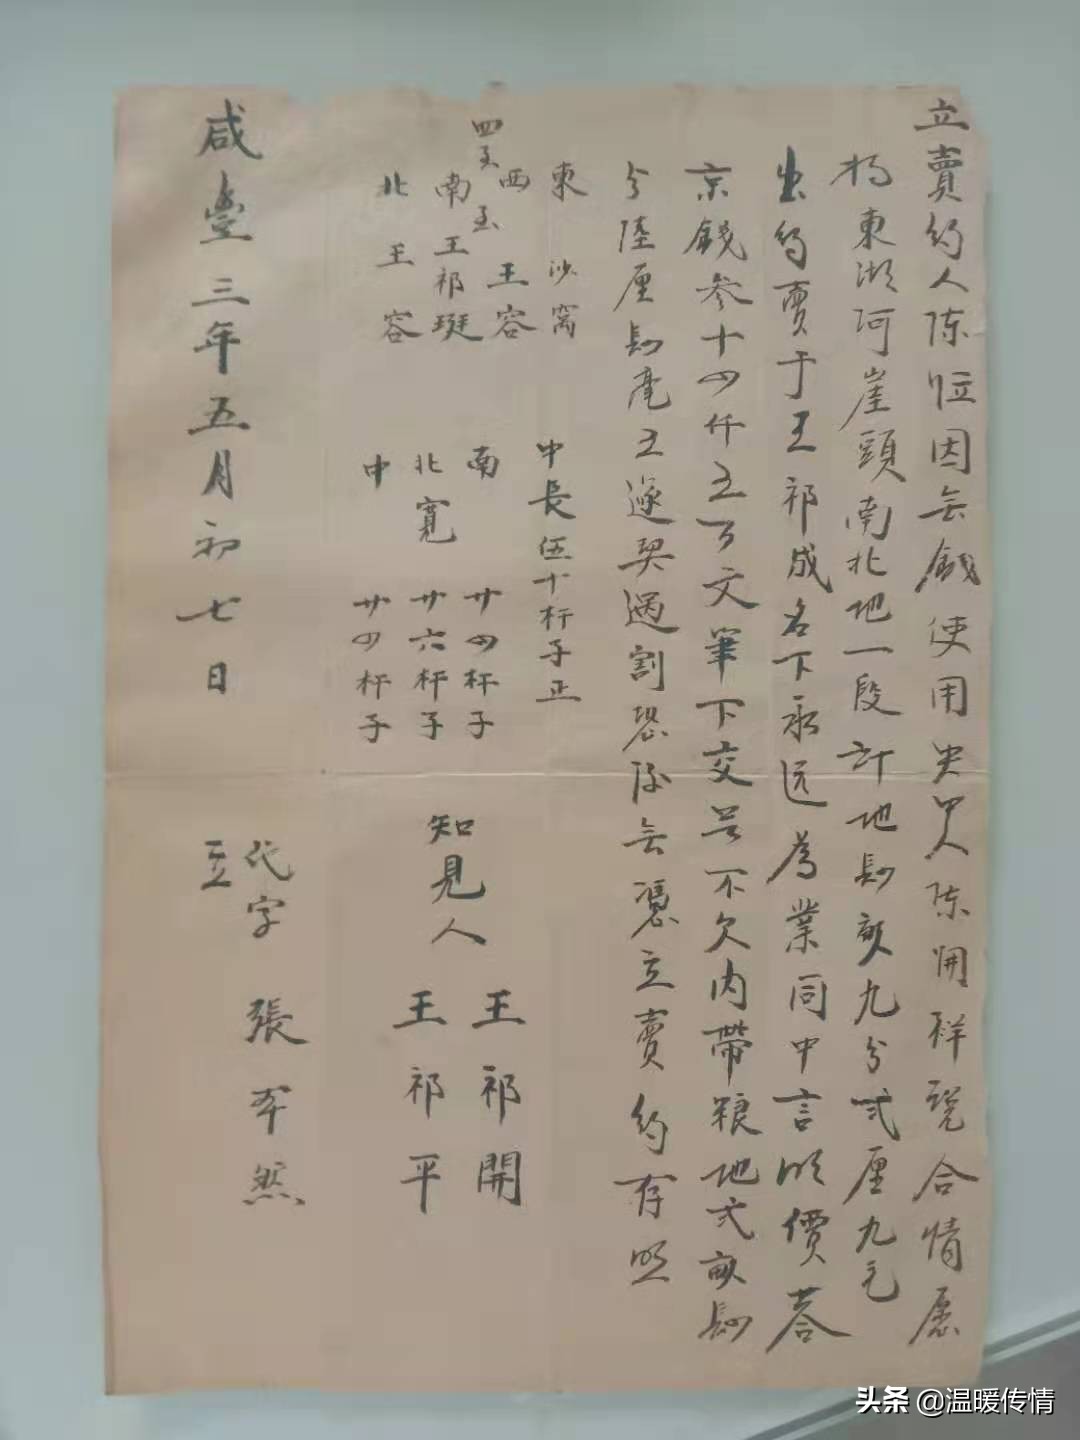 立賣約人陈位因无錢使用央中人陈用祥説合情愿
将東湖河崖頭南北地一段計地肆畝九分弍厘九毛
出約賣于王祁成名下永远為業同中言明價荅
京錢参十四仟五百文筆下交足不欠内帶粮地弍畝肆
分陸厘肆毫五逐契過割恐後无憑立賣約存照
四至
東 沙窝
西至 王容
南 王祁珽
北 王容
中長伍十杆子正
南 廿四杆子
北寬 廿六杆子
中 廿四杆子
知見人 王祁開
王祁平
咸豐三年五月初七日
代字 張 然
立
头条 @温暖传情